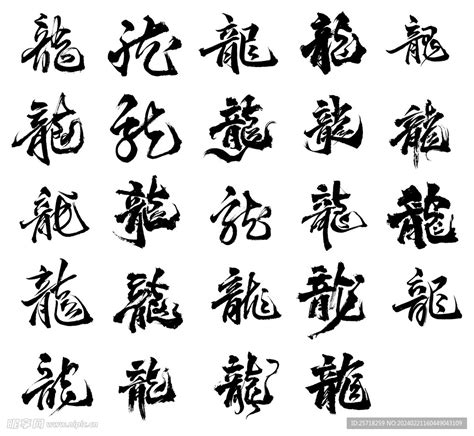 龍 龍 龍 龍 龍
龍 龍 龍 龍 龍
龍 龍 龍 龍 龍
龍 龍 龍 龍 龍
龍 龍 龍 龍
昵图网 www.nipic.cn
ID:25718259 NO:20240221160449043109